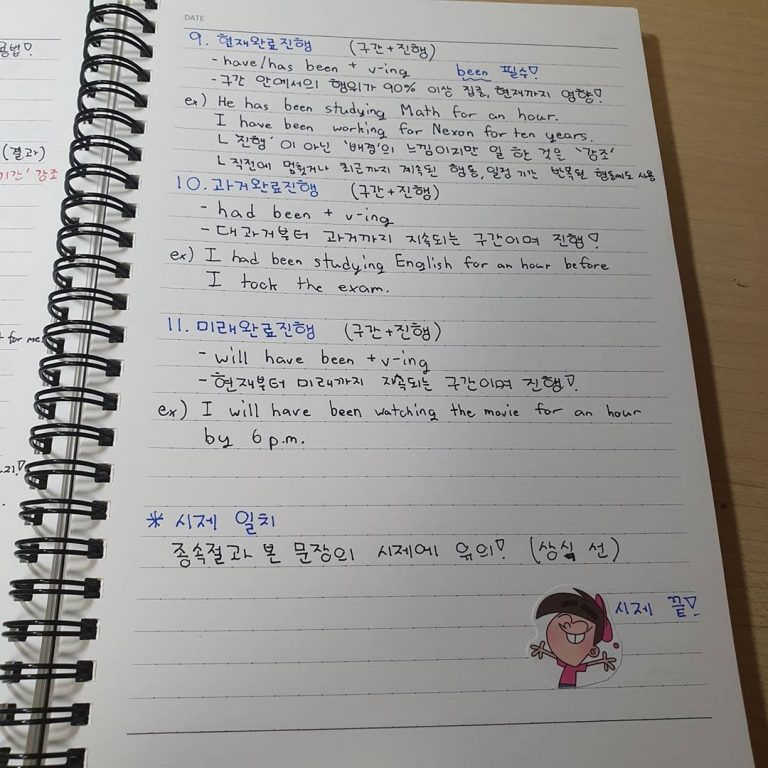 DATE
용법!
(결과)
기간' 강조
t for me.
9. 현재완료진행 (구간+진행)
- have/has been + v-ing been 필수!
- 구간 안에서의 행위가 90% 이상 집중, 현재까지 영향!
ex) He has been studying Math for an hour.
I have been working for Nexon for ten years.
ㄴ '진행'이 아닌 '배경'의 느낌이지만 일 한 것을 '강조'
ㄴ 직전에 멈췄거나 최근까지 계속된 행동, 일정 기간 반복된 행동에도 사용
10. 과거완료진행 (구간+진행)
- had been + v-ing
- 대과거부터 과거까지 지속되는 구간이며 진행!
ex) I had been studying English for an hour before
I took the exam.
11. 미래완료진행 (구간+진행)
- will have been + v-ing
- 현재부터 미래까지 지속되는 구간이며 진행!
ex) I will have been watching the movie for an hour
by 6 p.m.
* 시제 일치
종속절과 본 문장의 시제에 유의! (상식 선)
시제 끝!